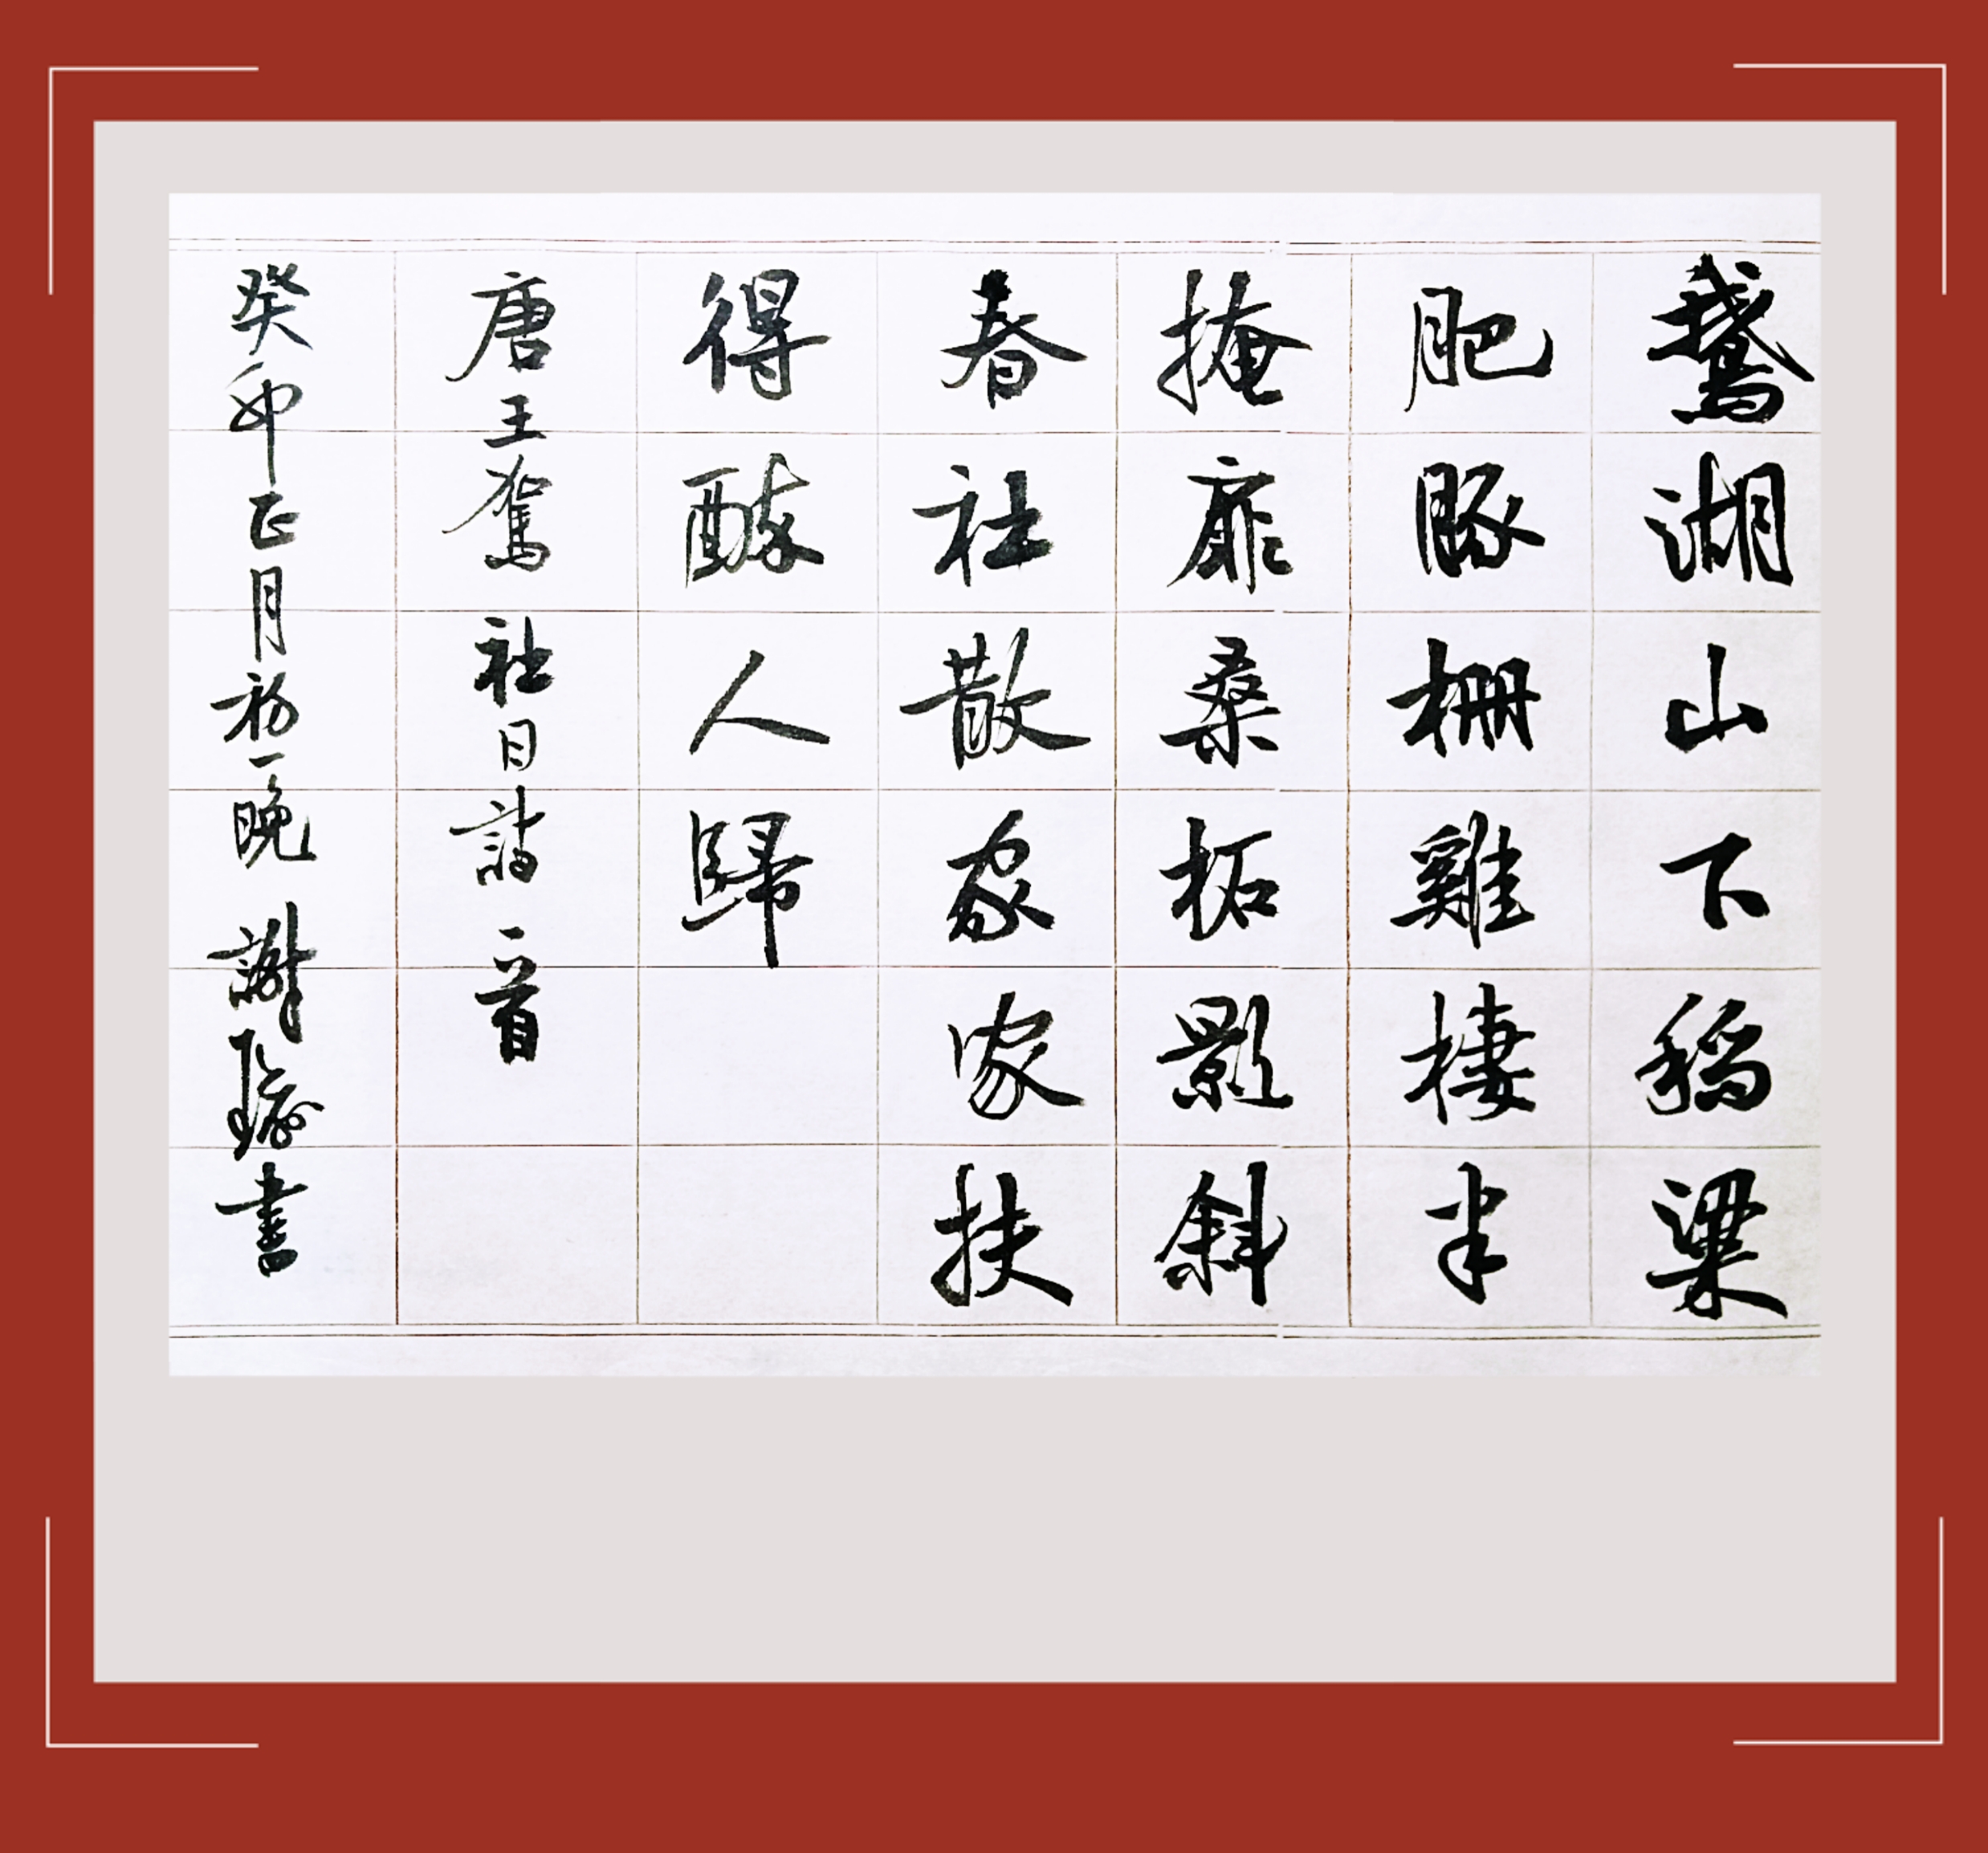 鵞湖山下稻粱
肥豚柵雞棲半
掩扉桑柘影斜
春社散家家扶
得醉人歸
唐王駕 社日詩一首
癸卯正月初一晚 謝書